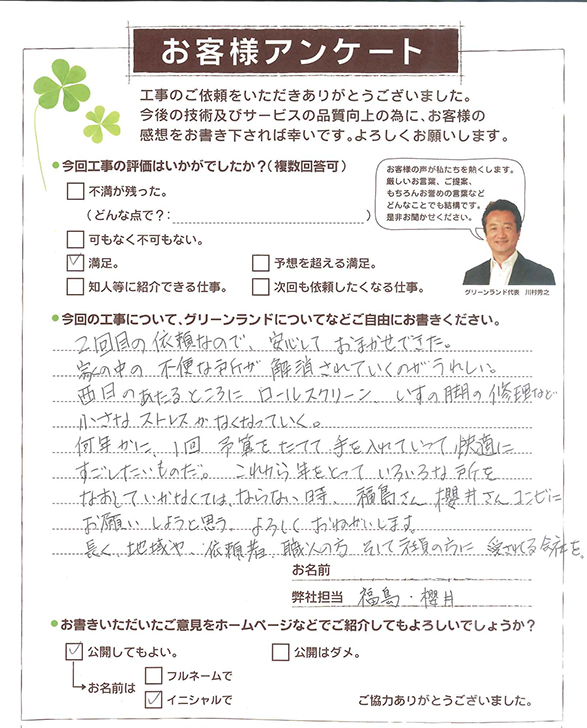 お客様アンケート
工事のご依頼をいただきありがとうございました。
今後の技術及びサービスの品質向上の為に、お客様の
感想をお書き下されば幸いです。よろしくお願いします。
●今回工事の評価はいかがでしたか?(複数回答可)
不満が残った。
(どんな点で?: )
可もなく不可もない。
満足。
予想を超える満足。
知人等に紹介できる仕事。
次回も依頼したくなる仕事。
お客様の声が私たちを熱くします。
厳しいお言葉、ご提案、
もちろんお誉めの言葉など
どんなことでも結構です。
是非お聞かせください。
グリーンランド代表 川村秀之
●今回の工事について、グリーンランドについてなどご自由にお書きください。
2回目の依頼なので、安心しておまかせできた。
家の中の不便な所が解消されていくのがうれしい。
西日のあたるところにロールスクリーン いすの脚の修理など
小さなストレスがなくなっていく。
何年かに、1回 予算をたてて手を入れていって快適に
すごしたいものだ。 これから年をとっていろいろな所を
なおしていかなくては、ならない時、福島さん櫻井さんコンビに
お願いしようと思う。よろしくおねがいします。
長く、地域や、依頼者、職人の方 そして社員の方に 愛される会社を。
お名前
弊社担当 福島・櫻井
●お書きいただいたご意見をホームページなどでご紹介してもよろしいでしょうか?
公開してもよい。
公開はダメ。
お名前は
フルネームで
イニシャルで
ご協力ありがとうございました。